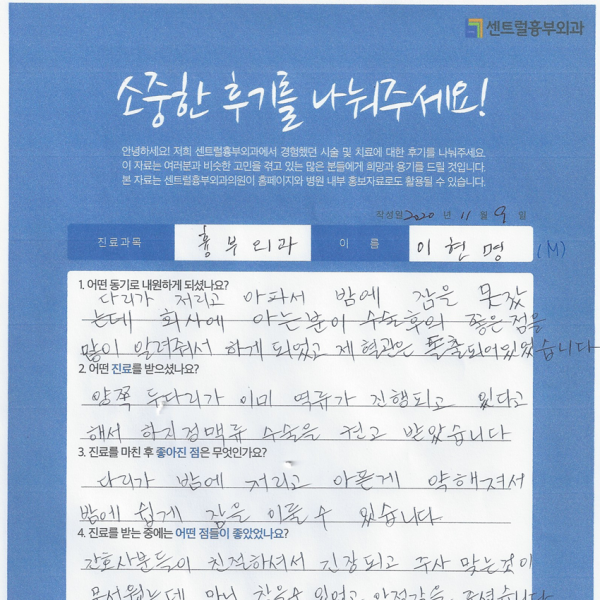 센트럴흉부외과
소중한 후기를 나눠주세요!
안녕하세요! 저희 센트럴흉부외과에서 경험했던 시술 및 치료에 대한 후기를 나눠주세요.
이 자료는 여러분과 비슷한 고민을 겪고 있는 많은 분들에게 희망과 용기를 드릴 것입니다.
본 자료는 센트럴흉부외과의원이 홈페이지와 병원 내부 홍보자료로도 활용될 수 있습니다.
작성일 2020 년 11 월 9 일
진료과목 흉부외과 이 름 이현명 (M)
1. 어떤 동기로 내원하게 되셨나요?
다리가 저리고 아파서 밤에 잠을 못잤
는데 회사에 아는분이 수술후의 좋은점을
많이 알려줘서 하게되었고 제 혈관은 돌출되어있었습니다
2. 어떤 진료를 받으셨나요?
양쪽 두다리가 이미 역류가 진행되고 있다고
해서 하지정맥류 수술을 권고 받았습니다
3. 진료를 마친 후 좋아진 점은 무엇인가요?
다리가 밤에 저리고 아픈게 약해져서
밤에 쉽게 잠을 이룰수 있습니다
4. 진료를 받는 중에는 어떤 점들이 좋았었나요?
간호사분들이 친절하셔서 긴장되고 주사 맞는것이